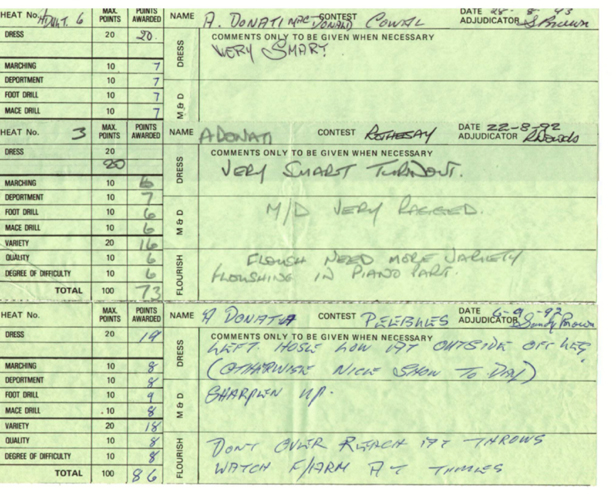 HEAT No. ADULT. 6 MAX. POINTS POINTS AWARDED NAME A. DONATI MACDONALD CONTEST COWAL DATE 28-8-93 ADJUDICATOR S Brown
DRESS 20 20. DRESS COMMENTS ONLY TO BE GIVEN WHEN NECESSARY
VERY SMART.
MARCHING 10 7
DEPORTMENT 10 7 M & D
FOOT DRILL 10 7
MACE DRILL 10 7
HEAT No. 3 MAX. POINTS POINTS AWARDED NAME A DONATI CONTEST ROTHESAY DATE 22-8-92 ADJUDICATOR
DRESS 20 20 DRESS COMMENTS ONLY TO BE GIVEN WHEN NECESSARY
VERY SMART TURNOUT.
MARCHING 10 6
DEPORTMENT 10 7 M & D M/D VERY RAGGED.
FOOT DRILL 10 6
MACE DRILL 10 6
VARIETY 20 16 FLOURISH
QUALITY 10 6 FLOURISH NEED MORE VARIETY
DEGREE OF DIFFICULTY 10 6 FLOURISHING IN PIANO PART.
TOTAL 100 73
HEAT No. MAX. POINTS POINTS AWARDED NAME A DONATI CONTEST PEEBLES DATE 6-9-92 ADJUDICATOR Sandy Brown
DRESS 20 19 DRESS COMMENTS ONLY TO BE GIVEN WHEN NECESSARY
LEFT HOSE LOW AT OUTSIDE OFF LEG
(OTHERWISE NICE SHOW TO DAY)
MARCHING 10 8
DEPORTMENT 10 8 M & D SHARPEN UP.
FOOT DRILL 10 9
MACE DRILL 10 8
VARIETY 20 18 FLOURISH
QUALITY 10 8 DONT OVER REACH AT THROWS
DEGREE OF DIFFICULTY 10 8 WATCH F/ARM AT TIMES
TOTAL 100 86